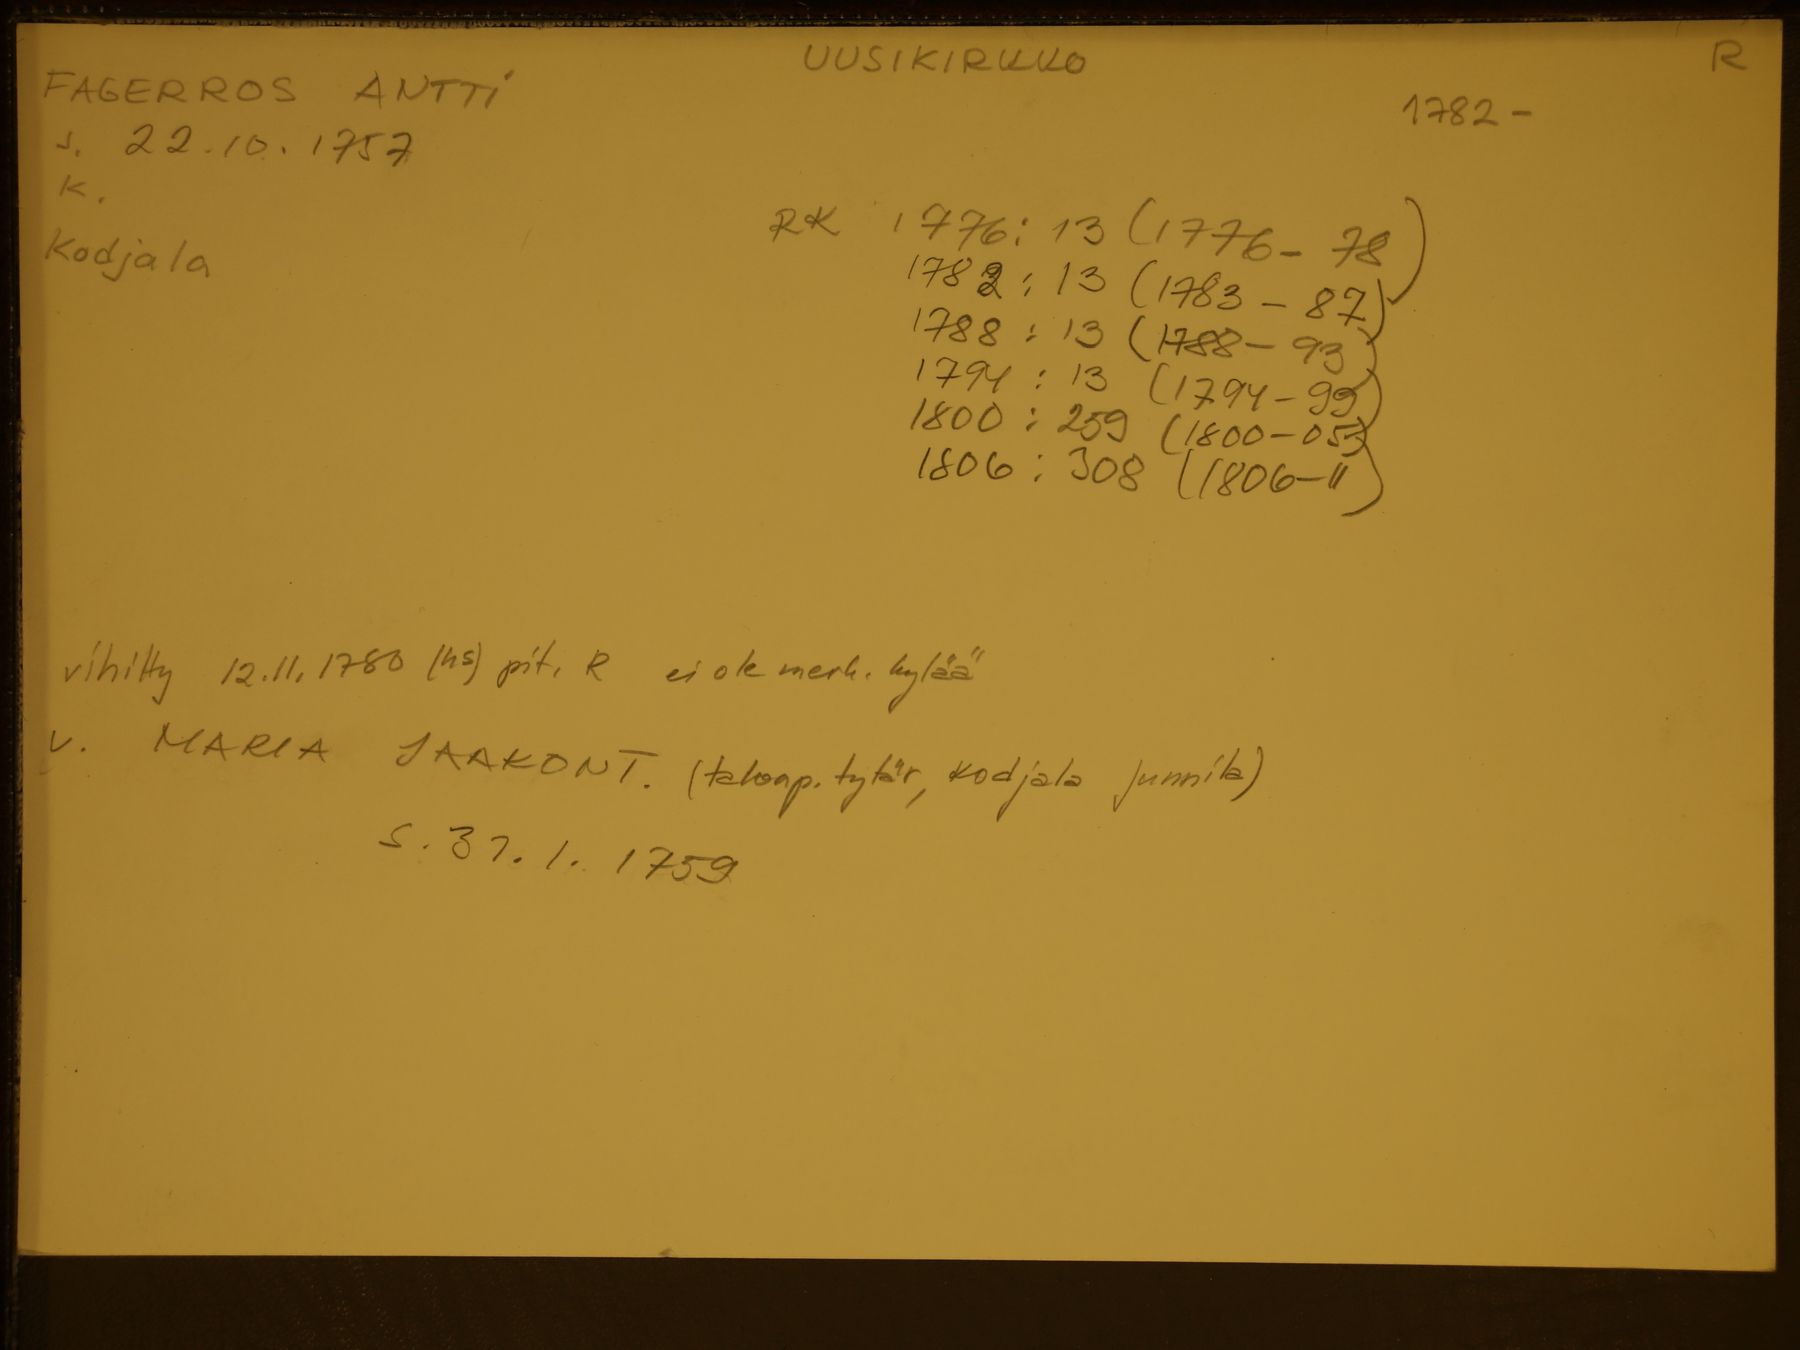 UUSIKIRKKO R
FAGERROS ANTTI
1782-
s. 22.10.1757
k.
RK 1776: 13 (1776-78)
Kodjala
1782: 13 (1783-87)
1788: 13 (1788-93)
1794: 13 (1794-99)
1800: 259 (1800-05)
1806: 308 (1806-11)
vihitty 12.11.1780 (hs) pit. R ei ole merk. kylää
v. MARIA JAAKONT. (talonp. tytär, Kodjala Junnila)
s. 31.1.1759